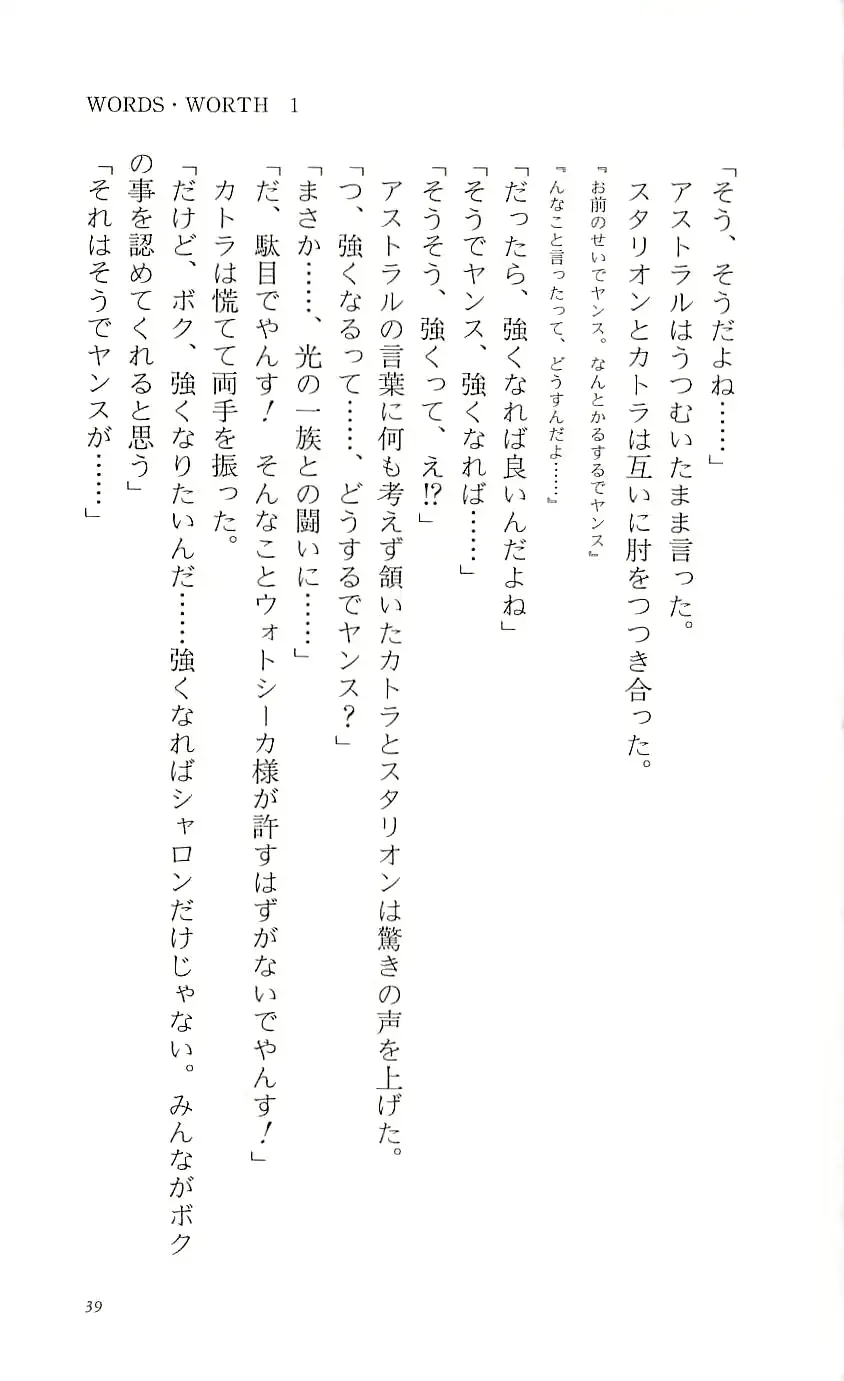 WORDS・WORTH 1
「そう、そうだよね……」
アストラルはうつむいたまま言った。
スタリオンとカトラは互いに肘をつつき合った。
『お前のせいでヤンス。なんとかるするでヤンス』
『んなこと言ったって、どうすんだよ……』
「だったら、強くなれば良いんだよね」
「そうでヤンス、強くなれば……」
「そうそう、強くって、え!?」
アストラルの言葉に何も考えず頷いたカトラとスタリオンは驚きの声を上げた。
「つ、強くなるって……、どうするでヤンス？」
「まさか……、光の一族との闘いに……」
「だ、駄目でやんす！　そんなことウォトシーカ様が許すはずがないでやんす！」
カトラは慌てて両手を振った。
「だけど、ボク、強くなりたいんだ……強くなればシャロンだけじゃない。みんながボク
の事を認めてくれると思う」
「それはそうでヤンスが……」
39